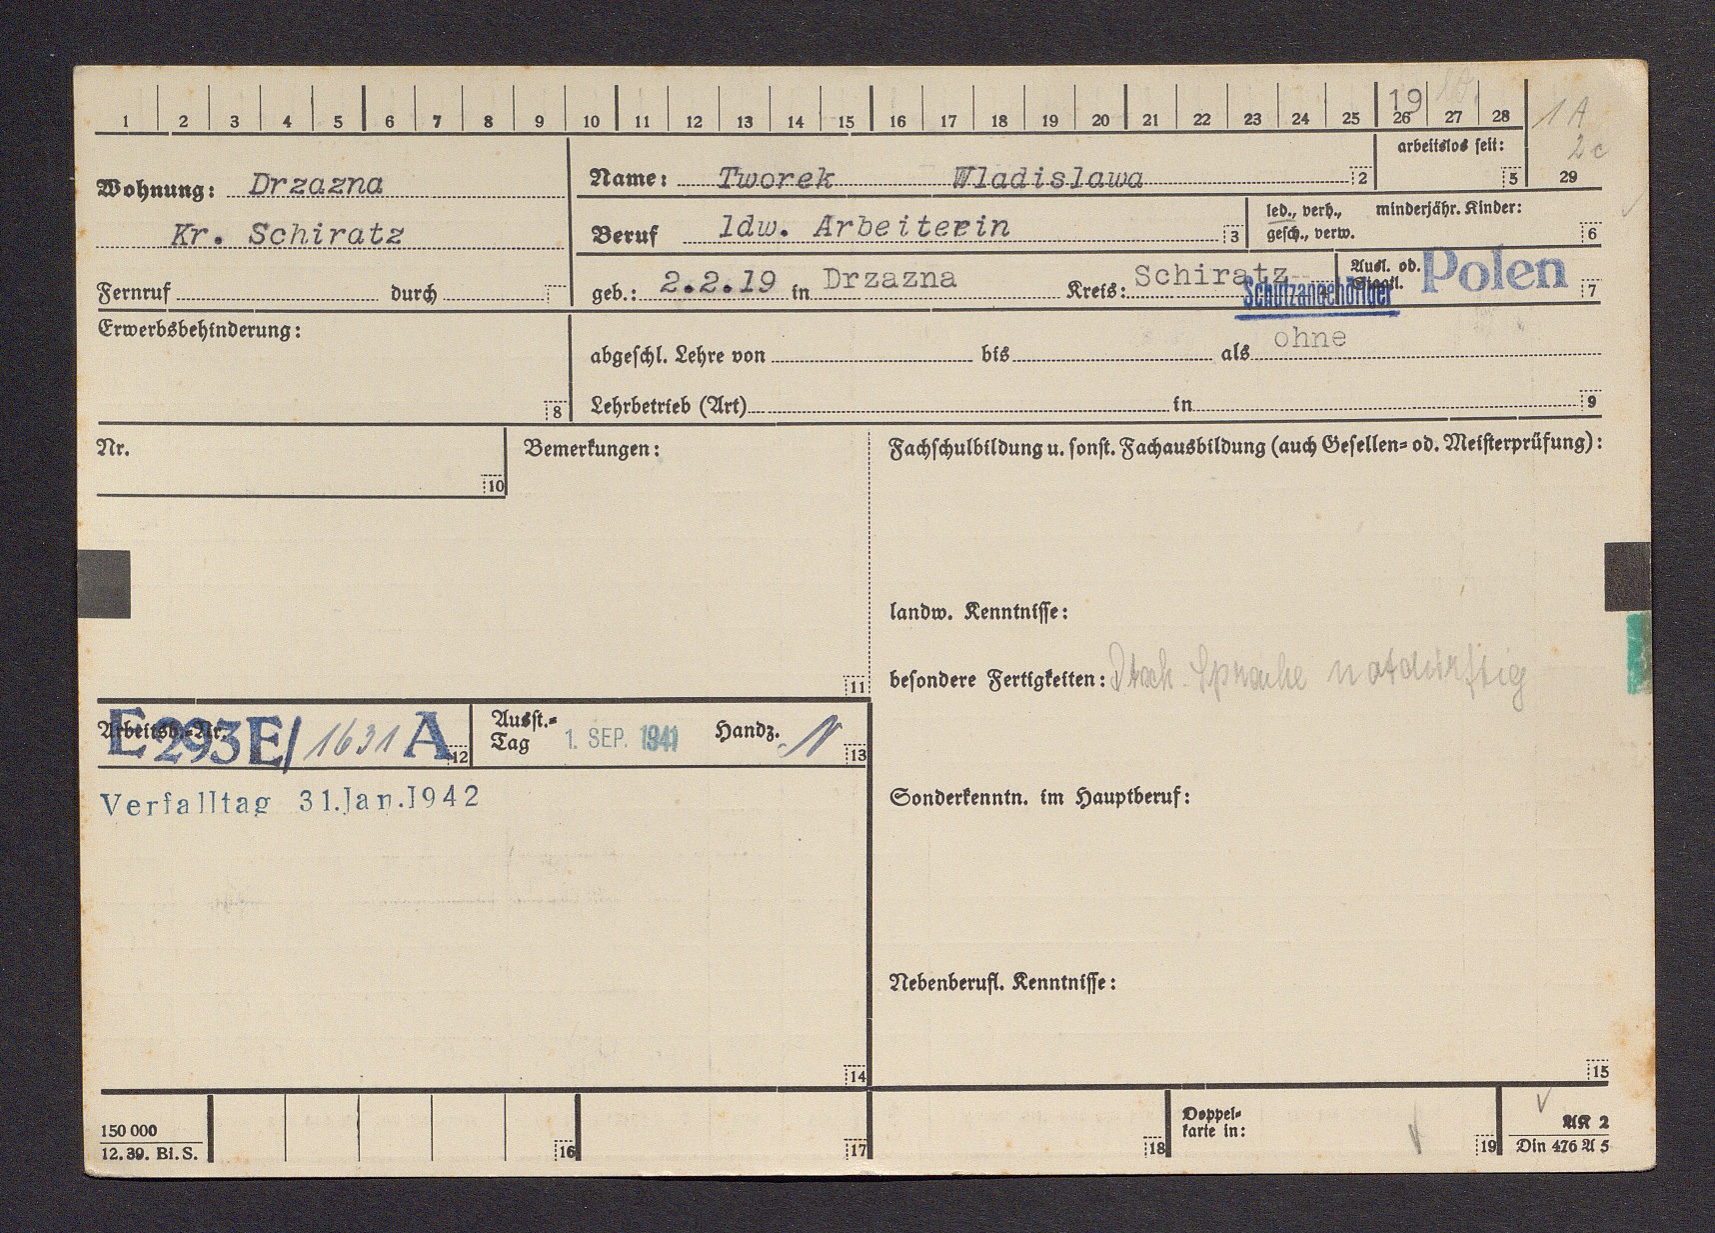 1 2 3 4 5 6 7 8 9 10 11 12 13 14 15 16 17 18 19 20 21 22 23 24 25 26 27 28
19
1 A
2c
29
Wohnung: Drzazna
Kr. Schiratz
Fernruf durch
Name: Tworek Wladislawa 2
arbeitslos seit: 5
Beruf ldw. Arbeiterin 3
led., verh., minderjähr. Kinder:
gesch., verw. 6
geb.: 2.2.19 in Drzazna Kreis: Schiratz
Schutzangehöriger
Ausl. od. Polen
Staatl. 7
Erwerbsbehinderung:
8
abgeschl. Lehre von bis als ohne
Lehrbetrieb (Art) in 9
Nr.
10
Bemerkungen:
11
Fachschulbildung u. sonst. Fachausbildung (auch Gesellen- od. Meisterprüfung):
landw. Kenntnisse:
besondere Fertigkeiten: Dtsch. Sprache notdürftig
Arbeitsb.-Nr. 12
E293E/1631 A
Ausst.-
Tag 1. SEP. 1941 Handz. 13
Verfalltag 31.Jan.1942
14
Sonderkenntn. im Hauptberuf:
Nebenberufl. Kenntnisse:
15
150 000
12. 39. Bi. S.
16
17
18
Doppel-
karte in: 19
AK 2
Din 476 A 5